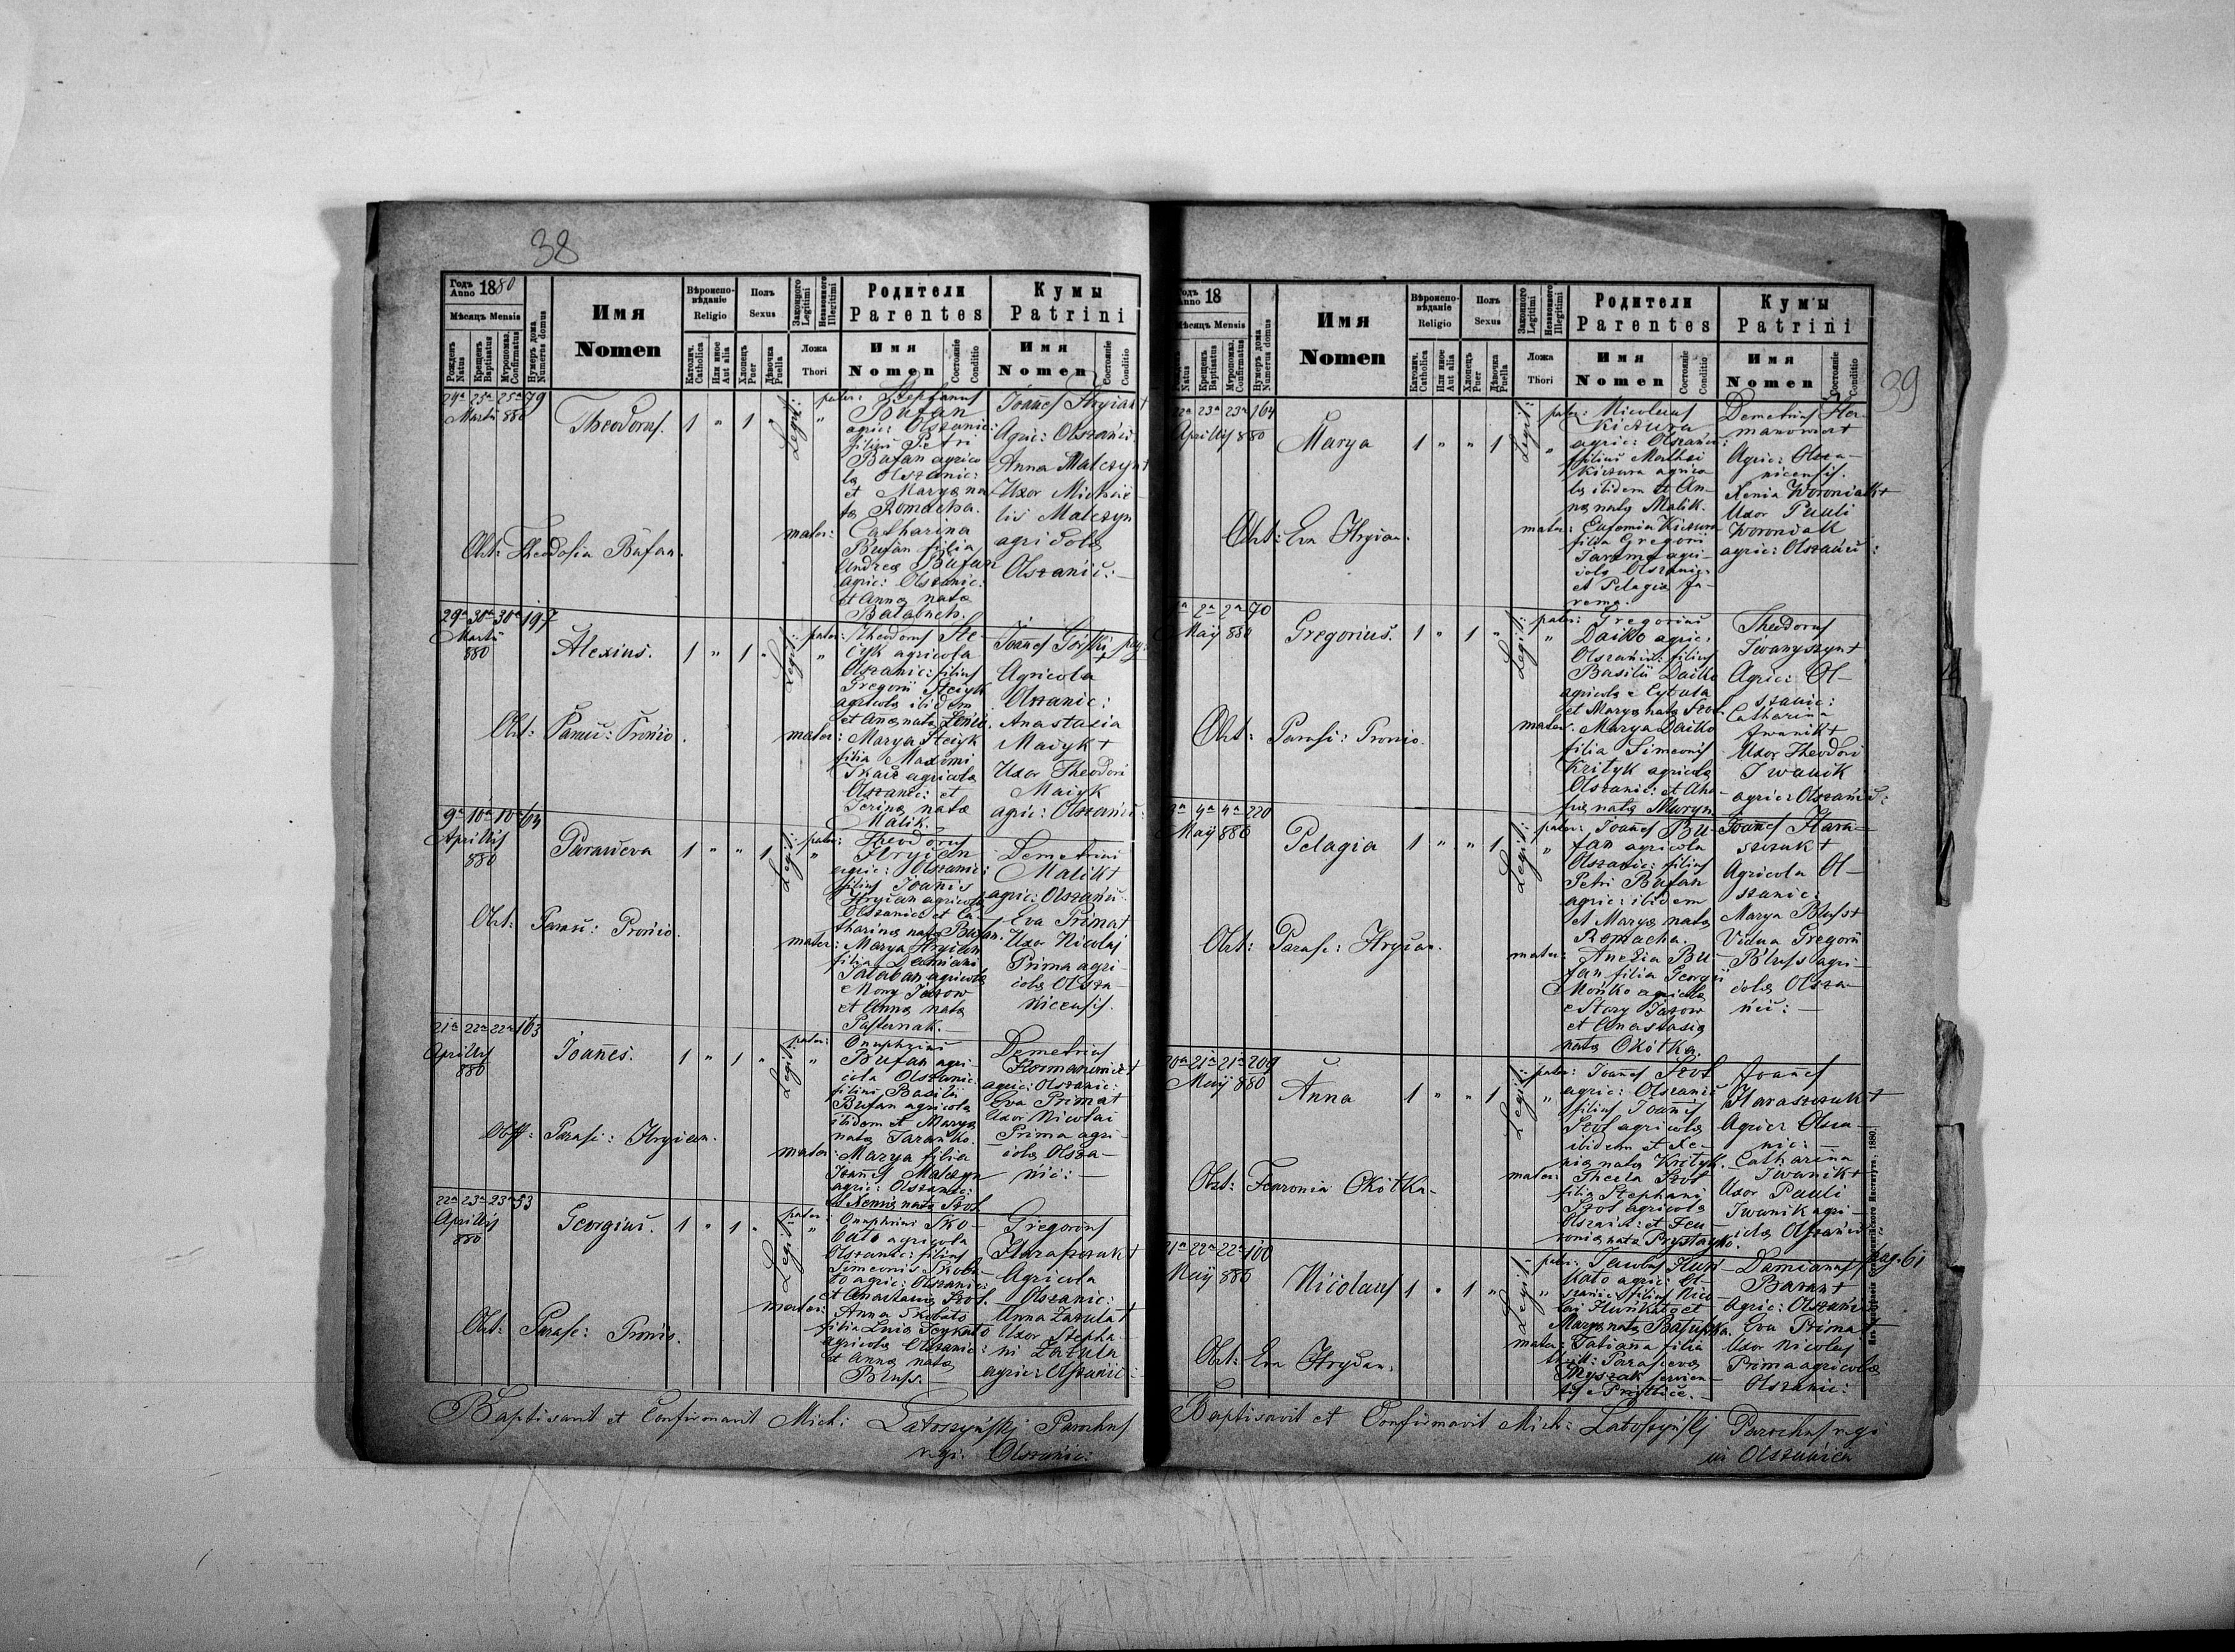 38
Годъ Anno 1880
Мѣсяцъ Mensis
Рожденъ Natus
Крещенъ Baptisatus
Мѵропомаз. Confirmatus
Нумеръ дома Numerus domus
Имя
Nomen
Вѣроиспо-
вѣданіе
Religio
Католич. Catholica
Или иное Aut alia
Полъ
Sexus
Хлопецъ Puer
Дѣвочка Puella
Законного Legitimi
Незаконного Illegitimi
Ложа
Thori
Родители
Parentes
Имя
Nomen
Состояніе Conditio
Кумы
Patrini
Имя
Nomen
Состояніе Conditio
24a 25a 25a 79
Martii 880
Theodorus. 1 " 1 "
Legit:
pater: Stephanus
Bufan
agric: Olszanic:
filius Petri
Bufan agrico
la Olszanic:
et Marya na
ta Romacha.
mater: Catharina
Bufan filia
Andrea Bufan
agric: Olszanic:
et Anna nata
Balabuch.
Joañes Hryian +
Agric: Olszanic:
Anna Malczyn +
Uxor Michaë-
lis Malczyn
agricola
Olszanic: —
Obst: Theodosia Bufan.
29a 30a 30a 197
Martii
880
Alexius. 1 " 1 "
Legit:
pater: Theodorus Ste-
cyk agricola
Olszanic: filius
Gregorii Steiyk
agricola ibidem
et Ana nata
mater: Marya Steiyk
filia Maximi
agricola
Olszanic: et
Irina nata
Malik.
Joañes Gorski
Agricola
Olszanic:
Anastasia
Maiyk +
Uxor Theodori
Maiyk
agric: Olszanic:
Obst: Parasc: Pronio.
9a 10a 10a 164
Aprillis
880
Parasceva 1 " " 1
Legit:
pater: Theodorus
Hryian
agric: Olszanic:
filius Joañis
Hryian agricola
Olszanic: et Ca-
tharina nata Bufan.
mater: Marya Hryian
filia Damiani
Balaban agricola
e Nowy Jazow
et Anna nata
Pasternak. —
Demetrius
Malik +
agric: Olszanic:
Eva Prima +
Uxor Nicolai
Prima agri-
cola Olsza-
nicensis.
Obst: Parasc: Pronio.
21a 22a 22a 163
Aprillis
880
Joañes. 1 " 1 "
Legit:
pater: Onuphrius
Bufan agri-
cola Olszanic:
filius Basilii
Bufan agricola
ibidem et Marya
nata Taranko.
mater: Marya filia
Joañes Malczyn
agric: Olszanic:
et Xenia nata Szot.
Demetrius
Hermanowicz +
agric: Olszanic:
Eva Prima +
Uxor Nicolai
Prima agri-
cola Olsza-
nic: —
Obst: Parasc: Hryian.
22a 23a 23a 53
Aprillis
880
Georgius. 1 " 1 "
Legit:
pater: Onuphrius Sko-
bato agricola
Olszanic: filius
Simeonis Skoba-
to agric: Olszanic:
et Anastasia Szot.
mater: Anna Skobato
filia
agricola Olszanic:
et Anna nata
Bluss.
Gregorius
Haraszczuk +
Agricola
Olszanic:
Anna Zazula +
Uxor Stepha-
ni Zazula
agric: Olszanic: —
Obst: Parasc: Pronio.
Baptisavit et Confirmavit Mich: Latoszyński Parochus
r. gr. Olszanic:
39
Годъ Anno 18
Мѣсяцъ Mensis
Natus
Крещенъ Baptisatus
Мѵропомаз. Confirmatus
Нумеръ дома Numerus domus
Имя
Nomen
Вѣроиспо-
вѣданіе
Religio
Католич. Catholica
Или иное Aut alia
Полъ
Sexus
Хлопецъ Puer
Дѣвочка Puella
Законного Legitimi
Незаконного Illegitimi
Ложа
Thori
Родители
Parentes
Имя
Nomen
Состояніе Conditio
Кумы
Patrini
Имя
Nomen
Состояніе Conditio
22a 23a 23a 164
Aprillis 880
Marya 1 " " 1
Legit:
pater: Nicolaus
Kiczura
agric: Olszanic:
filius Mathei
Kiczura agrico
la ibidem et An-
na nata Malik.
mater: Eufemia Kiczura
filia Gregorii
Jarema agri-
cola Olszanic:
et Pelagia Ja-
rema.
Demetrius Her-
manowicz +
Agric: Olsza-
nicensis.
Xenia Woroniak +
Uxor Pauli
Woroniak
agric: Olszanic:
Obst: Eva Hryian.
1a 2a 2a 70
Maij 880
Gregorius. 1 " 1 "
Legit:
pater: Gregorius
Daiko agric:
Olszanic: filius
Basilii Daiko
agricola e Cytula
et Marya nata Szot.
mater: Marya Daiko
filia Simeonis
Krityk agricola
Olszanic: et Aha-
fia nata Muryn.
Theodorus
Iwanyszyn +
Agric: Ol-
szanic:
Catharina
Iwanik +
Uxor Theodori
Iwanik
agric: Olszanic:
Obst: Parasc: Pronio.
3a 4a 4a 220
Maij 880
Pelagia 1 " " 1
Legit:
pater: Joañes Bu-
fan agricola
Olszanic: filius
Petri Bufan
agric: ibidem
et Marya nata
Romacha.
mater: Anezia Bu-
fan filia Georgii
Mońko agricola
e Stary Jazow
et Anastasia
nata Okotka.
Joañes Hara-
szczuk +
Agricola Ol-
szanic:
Marya Bluss +
Vidua Gregorii
Bluss agri-
cola Olsza-
nic: —
Obst: Parasc: Hryian.
20a 21a 21a 209
Maij 880
Anna 1 " " 1
Legit:
pater: Joañes Szot
agric: Olszanic:
filius Joañis
Szot agricola
ibidem et Xe-
nia nata Krityk.
mater: Thecla Szot
filia Stephani
Szot agricola
Olszanic: et Feu-
ronia nata Prystayko.
Joañes
Haraszczuk +
Agric: Olsza-
nic: —
Catharina
Iwanik +
Uxor Pauli
Iwanik agri-
cola Olszanic:
Obst: Feuronia Okotka.
21a 22a 22a 100
Maij 880
Nicolaus 1 " 1 "
Legit:
pater: Jacobus Huń-
kato agric: Ol-
szanic: filius Nico-
lai Huńkato et
Marya nata
mater: Tatiana filia
illeg: Parasceva
servien-
tis e
Damianus
Baran +
Agric: Olszanic:
Eva Prima +
Uxor Nicolai
Prima agricola
Olszanic:
pag. 61
Obst: Eva Hryian.
Baptisavit et Confirmavit Mich: Latoszyńskj Parochus r. gr.
in Olszanica
Изъ типографіи Ставропигійского Института, 1880.